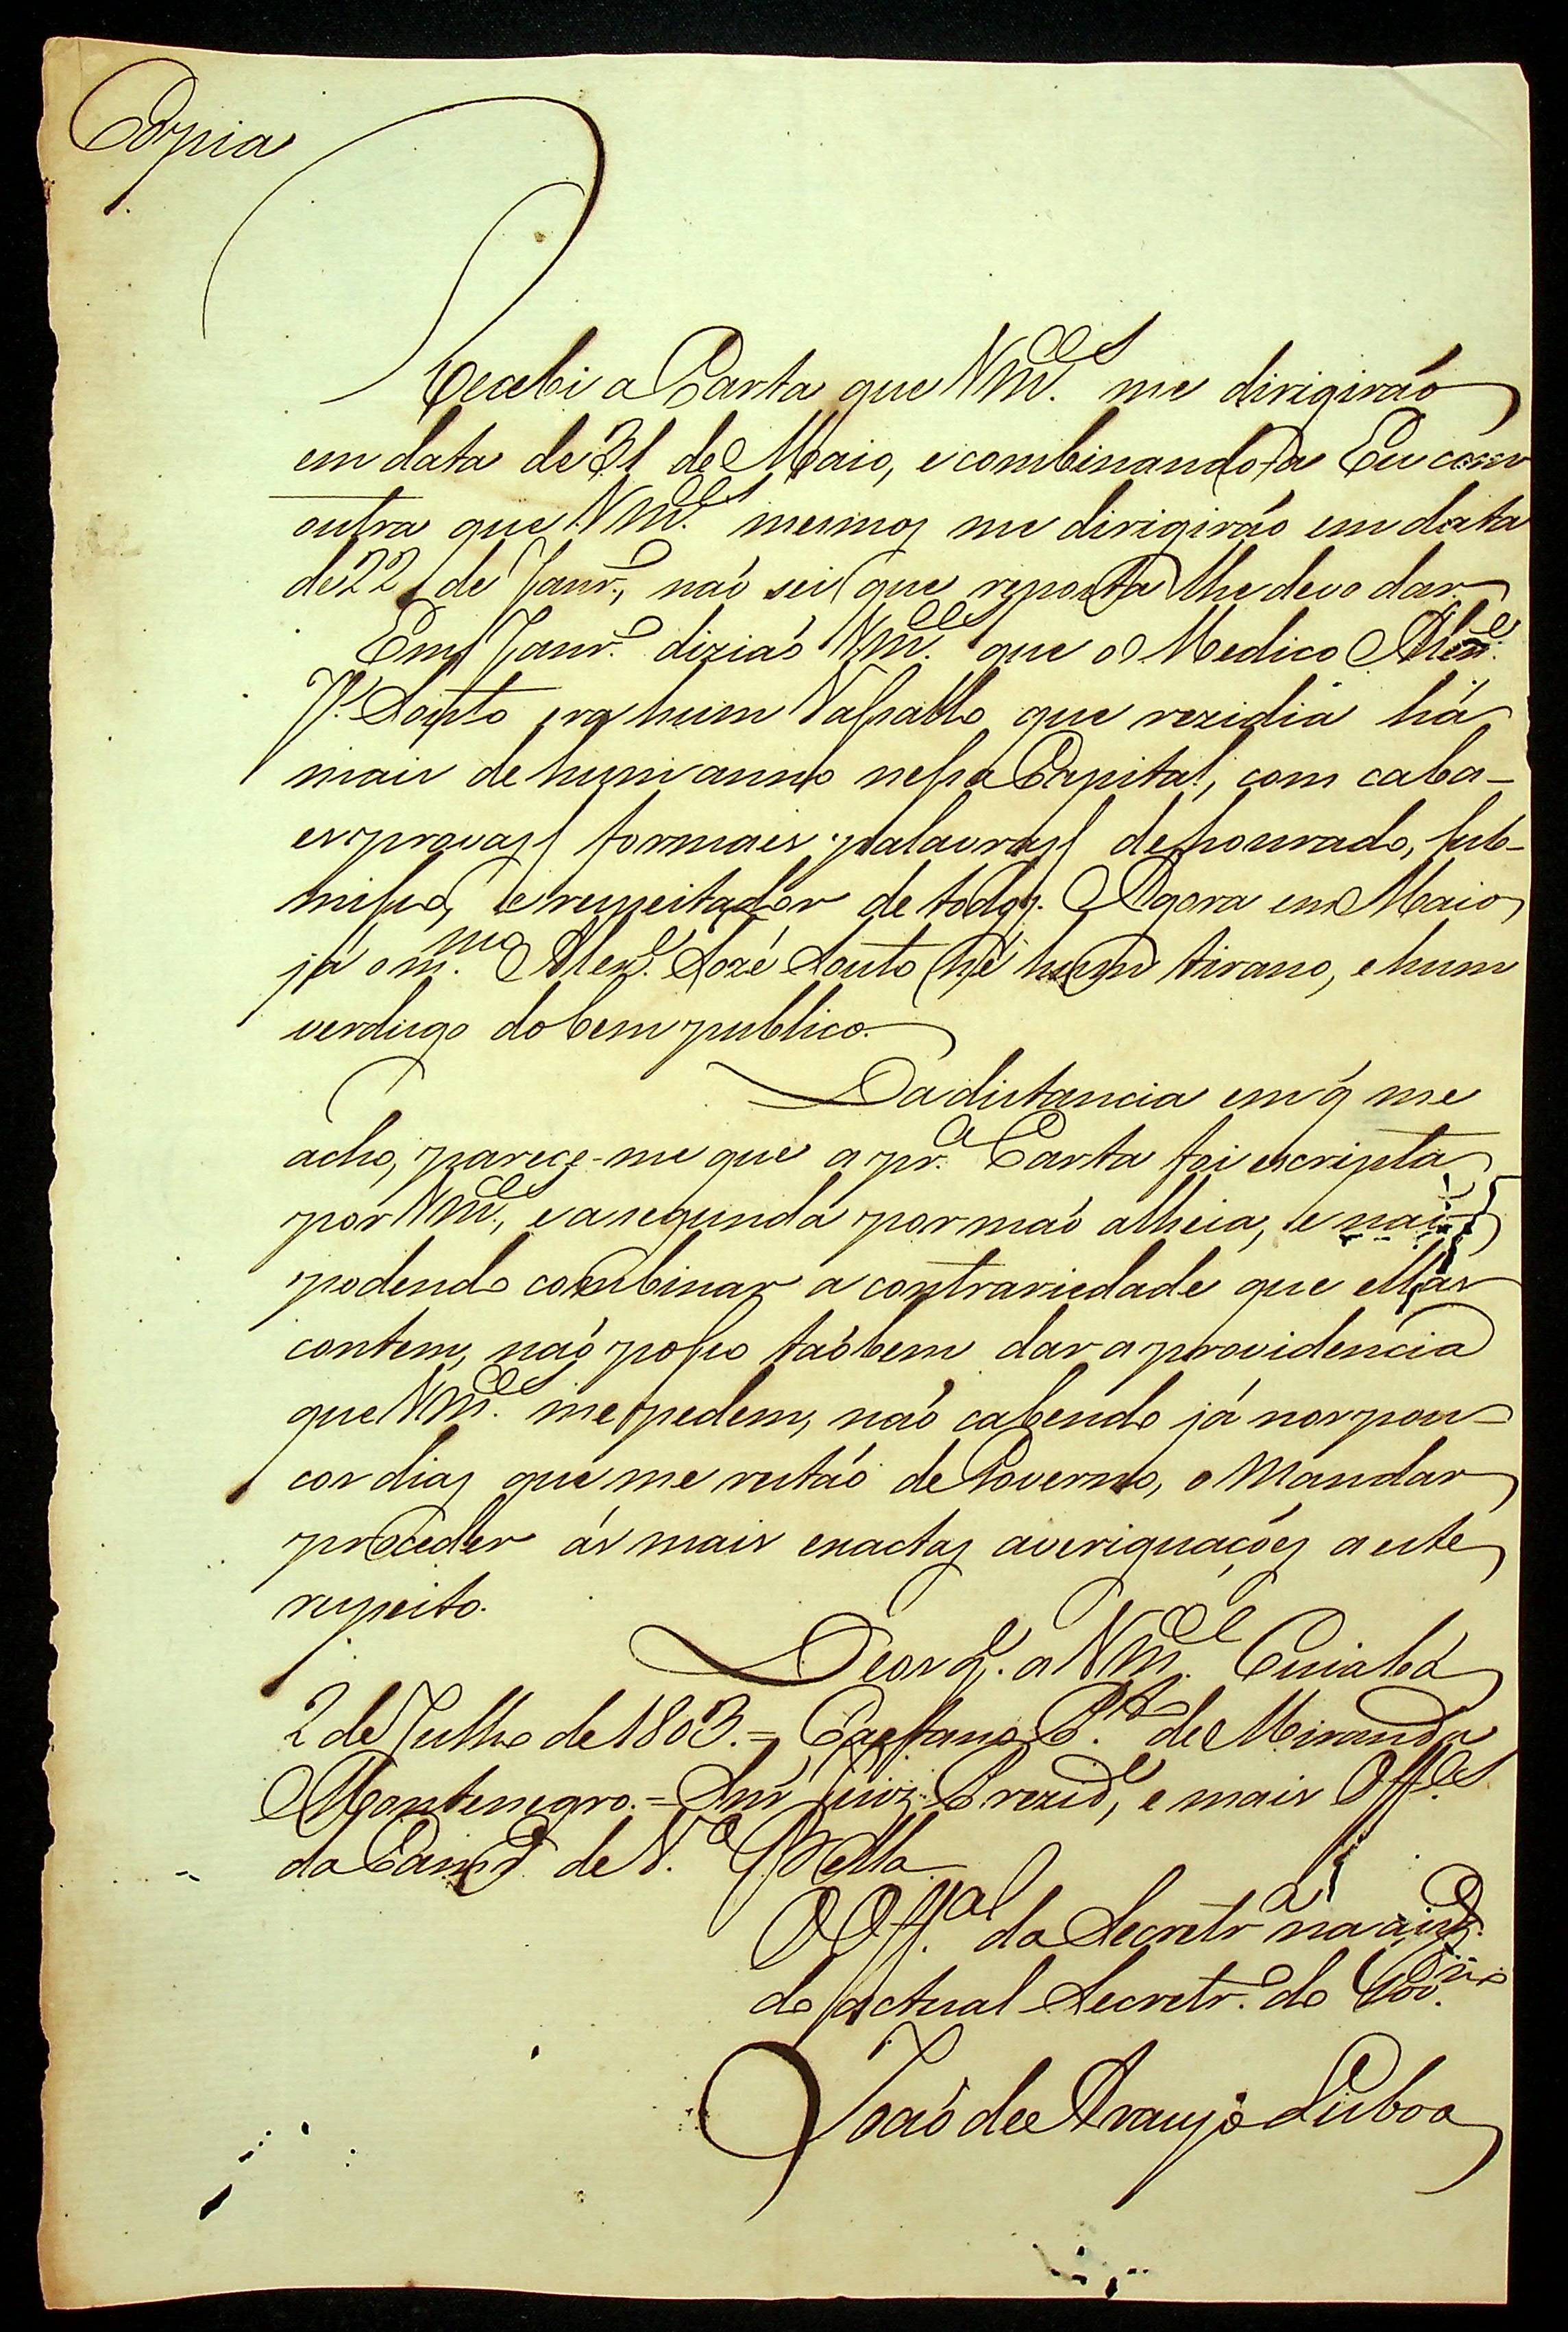 Copia
Recebi a Carta que Vm.ces me dirigiráo
em data de 31 de Maio, e combinando-a Eu com
outra que Vm.ces mesmos me dirigiráo em data
de 22 de Janr.o, naó sei que reposta lhe devo dar.
Em Janr.o diziaó Vm.ces que o Medico Alex.e
J.e Souto era hum Vassallo que rezidia há
mais de hum anno nessa Capital, com caba-
es provas formaes palavras de honrado, sub-
misso, e respeitador de todos. Agora em Maio
já o m.mo Alex.e Jozé Souto hé hum tirano, e hum
verdugo do bem publico.
Da distancia em q̃ me
acho, parece-me que a pr.a Carta foi escripta
por Vm.ces, e a segunda por maó alheia, e naó
podendo combinar a contrariedade que ellas
contem, naó posso taóbem dar a providencia
que Vm.ces me pedem, naó cabendo já nos pou-
cos dias que me restáo de Governo, o Mandar
proceder ás mais exactas averiguaçóes a este
respeito.
Deos g.e a Vm.ces Cuiabá
2 de Julho de 1803.= Caetano P.to de Miranda
Montenegro.= Snr Juiz Prezid.e, e mais Off.es
da Camr.a de V.a Bella
O Off.al da Secretr.a na auz.a
do actual Secretr.o do Gov.no
Joaó de Araujo Lisboa